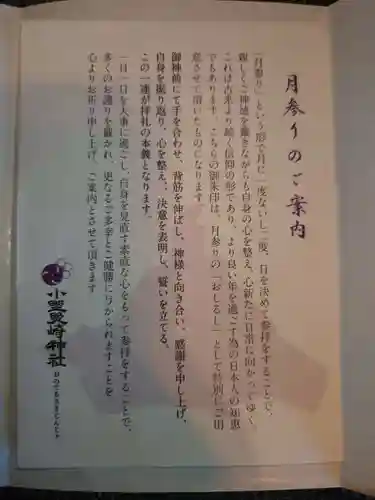 月参りのご案内
「月参り」という形で月に一度ないし二度、日を決めて参拝をすることで、
親しくご神徳を戴きながらも自身の心を整え、心新たに日常に向かってゆく。
これは古来より続く信仰の形であり、より良い年を過ごす為の日本人の知恵
でもあります。こちらの御朱印は、月参りの「おしるし」として特別にご用
意させて頂いたものになります。
御神前にて手を合わせ、背筋を伸ばし、神様と向き合い、感謝を申し上げ、
自身を振り返り、心を整え、決意を表明し、誓いを立てる。
この一連が拝礼の本義となります。
一日一日を大事に過ごし、自身を見直す素直な心をもって参拝をすることで、
多くのお護りを戴かれ、更なるご多幸とご健勝に与かられますことを
心よりお祈り申し上げ、ご案内とさせて頂きます
小野照崎神社
おのてるさきじんじゃ